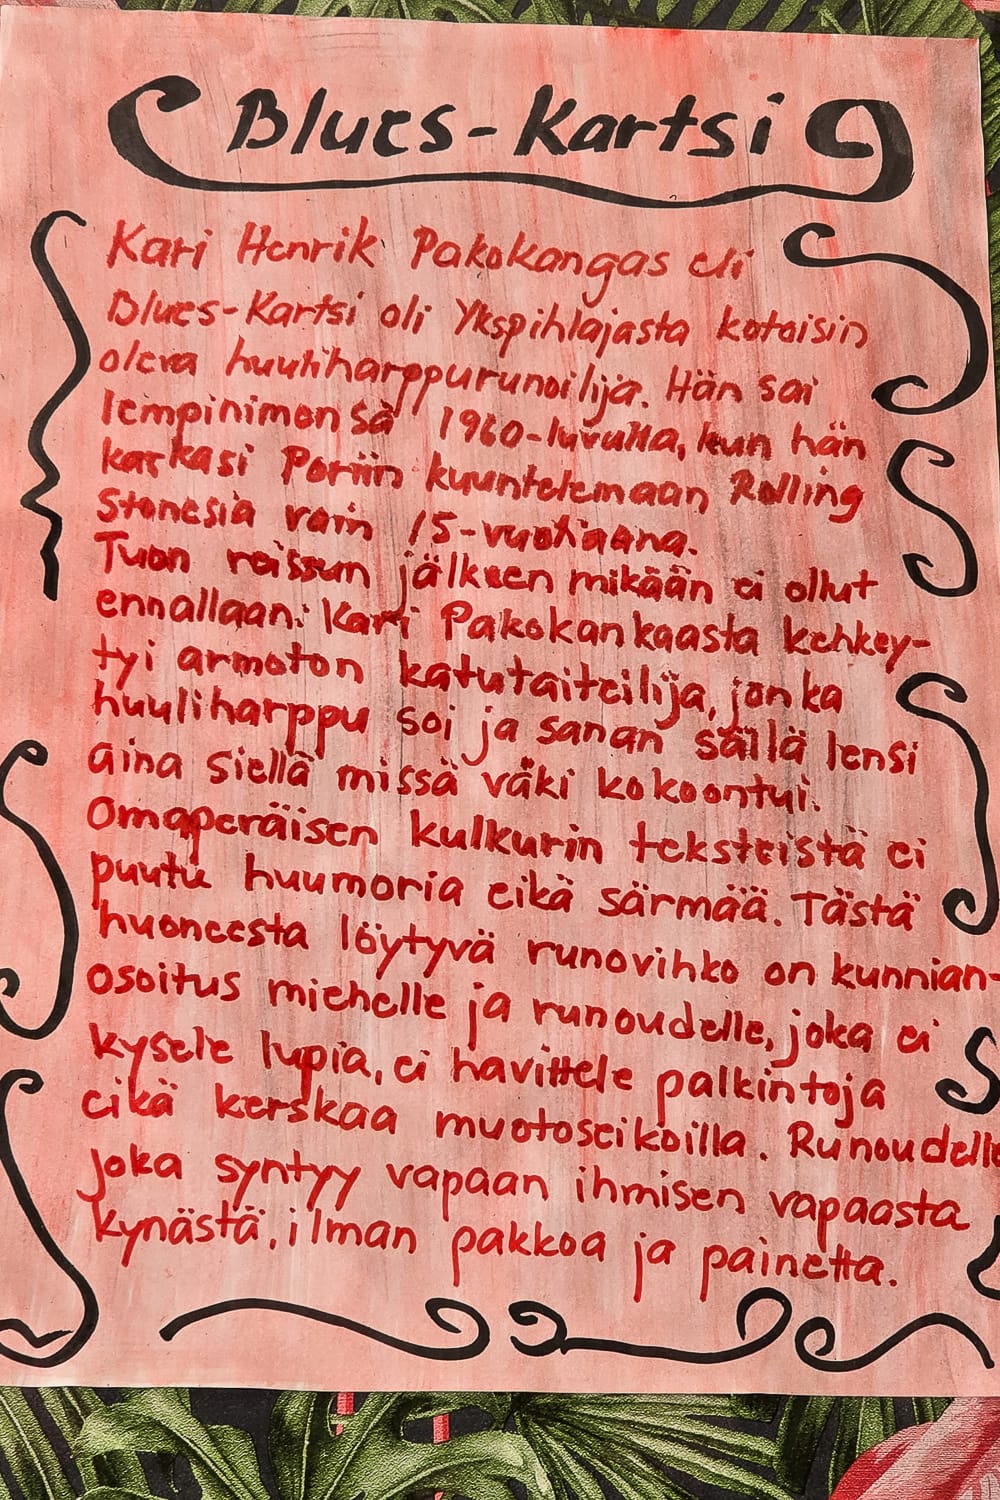 Blues-Kartsi
Kari Henrik Pakokangas eli
Blues-Kartsi oli Ykspihlajasta kotoisin
oleva huuliharppurunoilija. Hän sai
lempinimensä 1960-luvulla, kun hän
karkasi Poriin kuuntelemaan Rolling
Stonesia vain 15-vuotiaana.
Tuon reissun jälkeen mikään ei ollut
ennallaan: Kari Pakokankaasta kehkey-
tyi armoton katutaiteilija, jonka
huuliharppu soi ja sanan säilä lensi
aina siellä missä väki kokoontui.
Omaperäisen kulkurin teksteistä ei
puutu huumoria eikä särmää. Tästä
huoneesta löytyvä runovihko on kunnian-
osoitus miehelle ja runoudelle, joka ei
kysele lupia, ei havittele palkintoja
eikä kerskaa muotoseikoilla. Runoudelle
joka syntyy vapaan ihmisen vapaasta
kynästä, ilman pakkoa ja painetta.